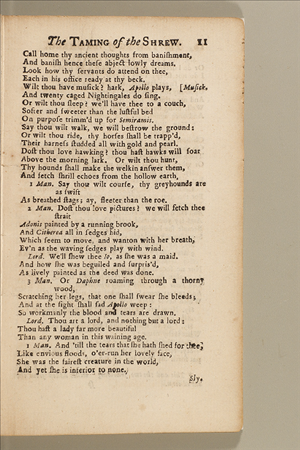 The TAMING of the SHREW. 11
Call home thy ancient thoughts from banishment,
And banish hence these abject lowly dreams.
Look how thy servants do attend on thee,
Each in his office ready at thy beck.
Wilt thou have musick? hark, Apollo plays, [Musick.
And twenty caged Nightingales do sing.
Or wilt thou sleep? we'll have thee to a couch,
Softer and sweeter than the lustful bed
On purpose trimm'd up for Semiramis.
Say thou wilt walk, we will bestrow the ground:
Or wilt thou ride, thy horses shall be trapp'd,
Their harness studded all with gold and pearl.
Dost thou love hawking? thou hast hawks will soar
Above the morning lark. Or wilt thou hunt,
Thy hounds shall make the welkin answer them,
And fetch shrill echoes from the hollow earth,
1 Man. Say thou wilt course, thy greyhounds are
as swift
As breathed stags; ay, fleeter than the roe.
2 Man. Dost thou love pictures? we will fetch thee
strait
Adonis painted by a running brook,
And Citherea all in sedges hid,
Which seem to move, and wanton with her breath,
Ev'n as the waving sedges play with wind.
Lord. We'll shew thee Io, as she was a maid.
And how she was beguiled and surpris'd,
As lively painted as the deed was done.
3 Man. Or Daphne roaming through a thorny
wood,
Scratching her legs, that one shall swear she bleeds;
And at the sight shall sad Apollo weep:
So workmanly the blood and tears are drawn.
Lord. Thou art a lord, and nothing but a lord:
Thou hast a lady far more beautiful
Than any woman in this waining age.
1 Man. And 'till the tears that she hath shed for thee,
Like envious floods, o'er-run her lovely face,
She was the fairest creature in the world,
And yet she is inferior to none.
Sly.